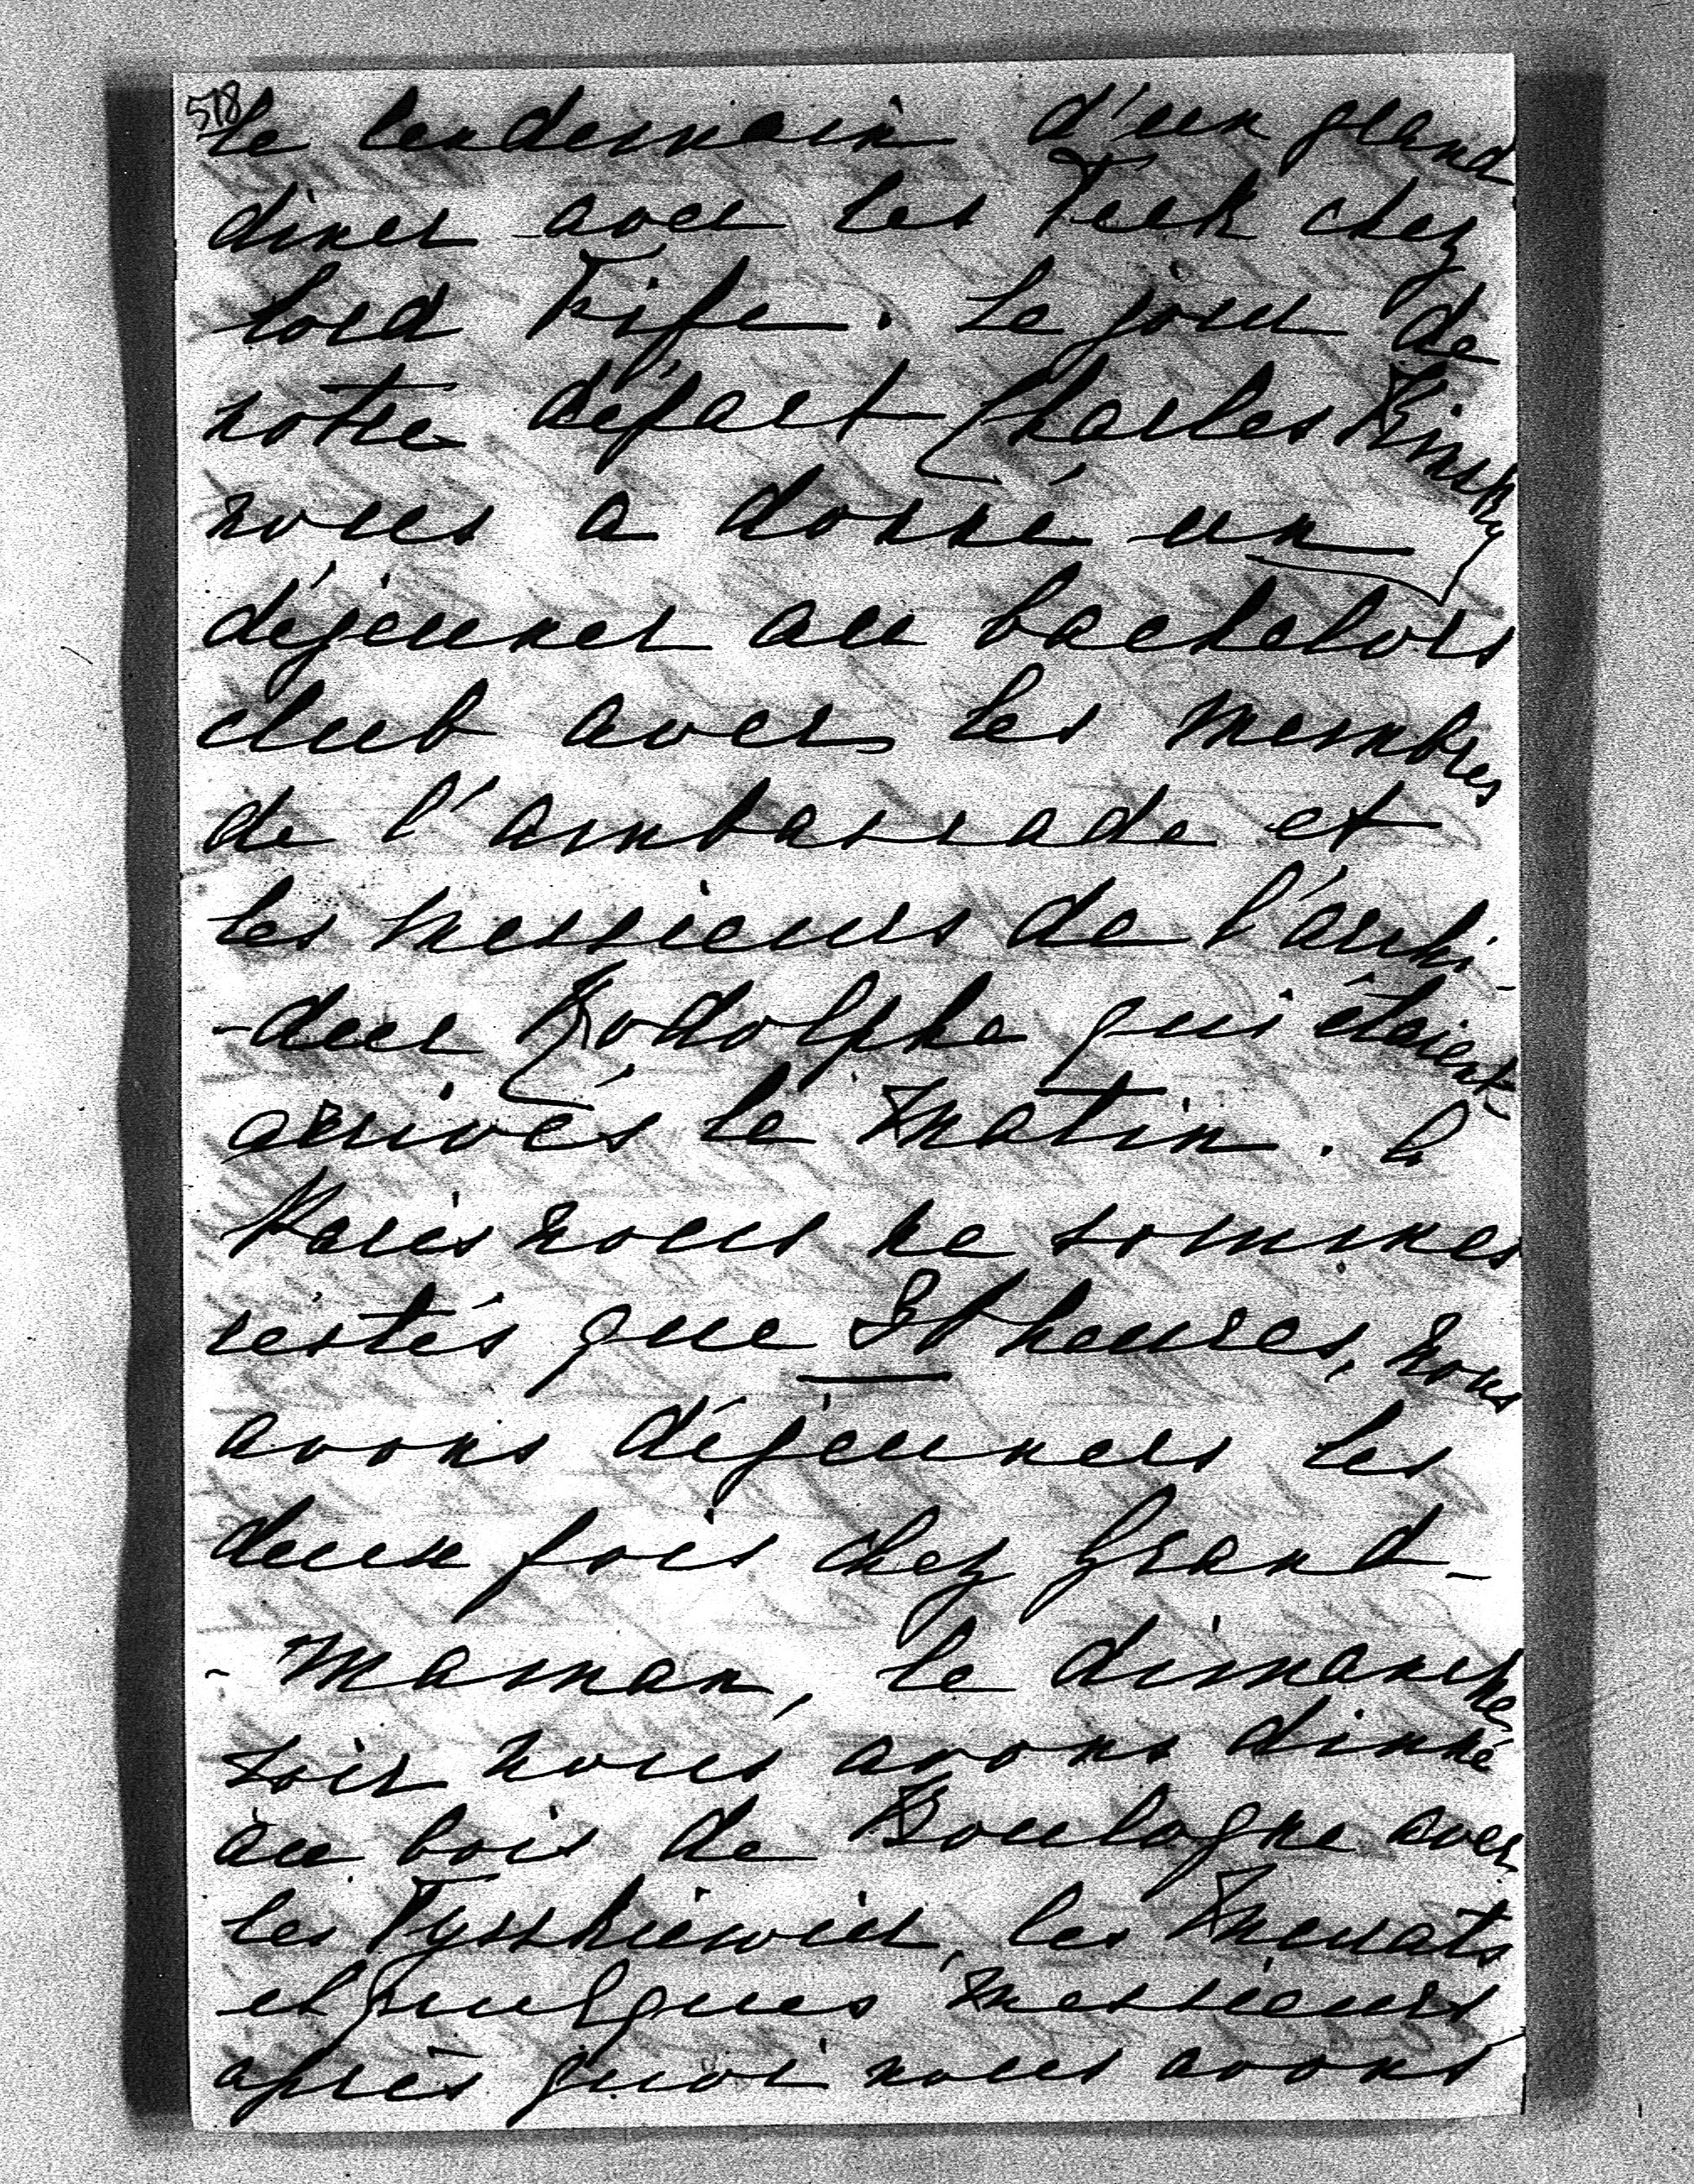 578
le lendemain d'un grand
diner avec les Teck chez
lord Fife. Le jour de
notre départ Charles Kinsky
nous a donné un
déjeuner au bachelors
club avec les membres
de l'ambassade et
les messieurs de l'archi-
-duc Rodolphe qui étaient
arrivés le matin. A
Paris nous ne sommes
restés que heures, nous
avons déjeuners les
deux fois chez Grand-
-Maman, le dimanche
soir nous avons dinné
au bois de Boulogne avec
les Tysskiewicz, les Murats
et quelques messieurs
après quoi nous avons